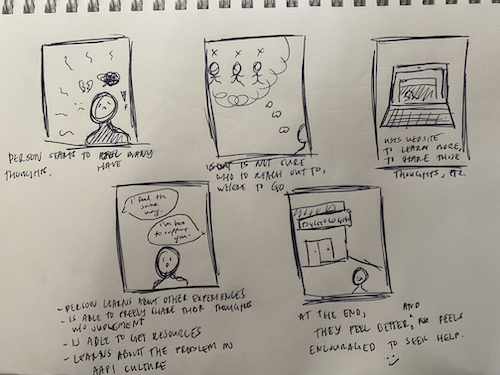 PERSON STARTS TO HAVE MANY
THOUGHTS.
IS NOT SURE
WHO TO REACH OUT TO,
WHERE TO GO
USES WEBSITE
TO LEARN MORE,
TO SHARE THOSE
THOUGHTS, ETC
i feel the
same
way.
i'm here
to support
you.
- PERSON LEARNS ABOUT OTHER EXPERIENCES
- IS ABLE TO FREELY SHARE THEIR THOUGHTS
W/O JUDGEMENT
- IS ABLE TO GET RESOURCES
- LEARNS ABOUT THE PROBLEM IN
AAPI CULTURE
PSYCHOLOGIST
AT THE END, AND
THEY FEEL BETTER, FEELS
ENCOURAGED TO SEEK HELP.